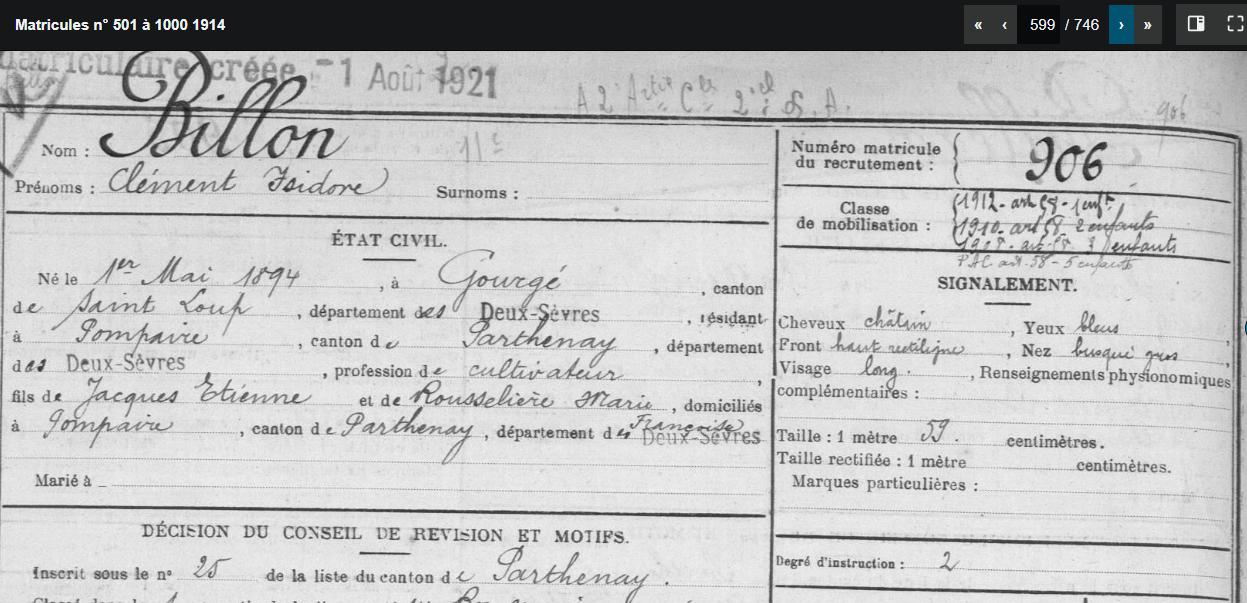 Matricules n° 501 à 1000 1914
« ‹ 599 / 746 › »
matriculaire créée - 1 Août 1921
A 2 C 2 A.
906
Nom : Billon
11e
Prénoms : Clément Isidore Surnoms :
Numéro matricule du recrutement : 906
Classe de mobilisation :
1912 - art 58 - 1 enft
1910 - art 58 2 enfants
1908 - art 58 3 enfants
P.A.C art. 58 - 5 enfants
ÉTAT CIVIL.
Né le 1er Mai 1894, à Gourgé, canton
de Saint Loup, département des Deux-Sèvres, résidant
à Pompaire, canton de Parthenay, département
des Deux-Sèvres, profession de cultivateur,
fils de Jacques Etienne et de Rousselière Marie, domiciliés
Françoise
à Pompaire, canton de Parthenay, département des Deux-Sèvres
Marié à
SIGNALEMENT.
Cheveux châtain, Yeux bleus
Front haut rectiligne, Nez busqué gros
Visage long., Renseignements physionomiques
complémentaires :
Taille : 1 mètre 59. centimètres.
Taille rectifiée : 1 mètre centimètres.
Marques particulières :
Degré d'instruction : 2
DÉCISION DU CONSEIL DE REVISION ET MOTIFS.
Inscrit sous le n° 25 de la liste du canton de Parthenay.